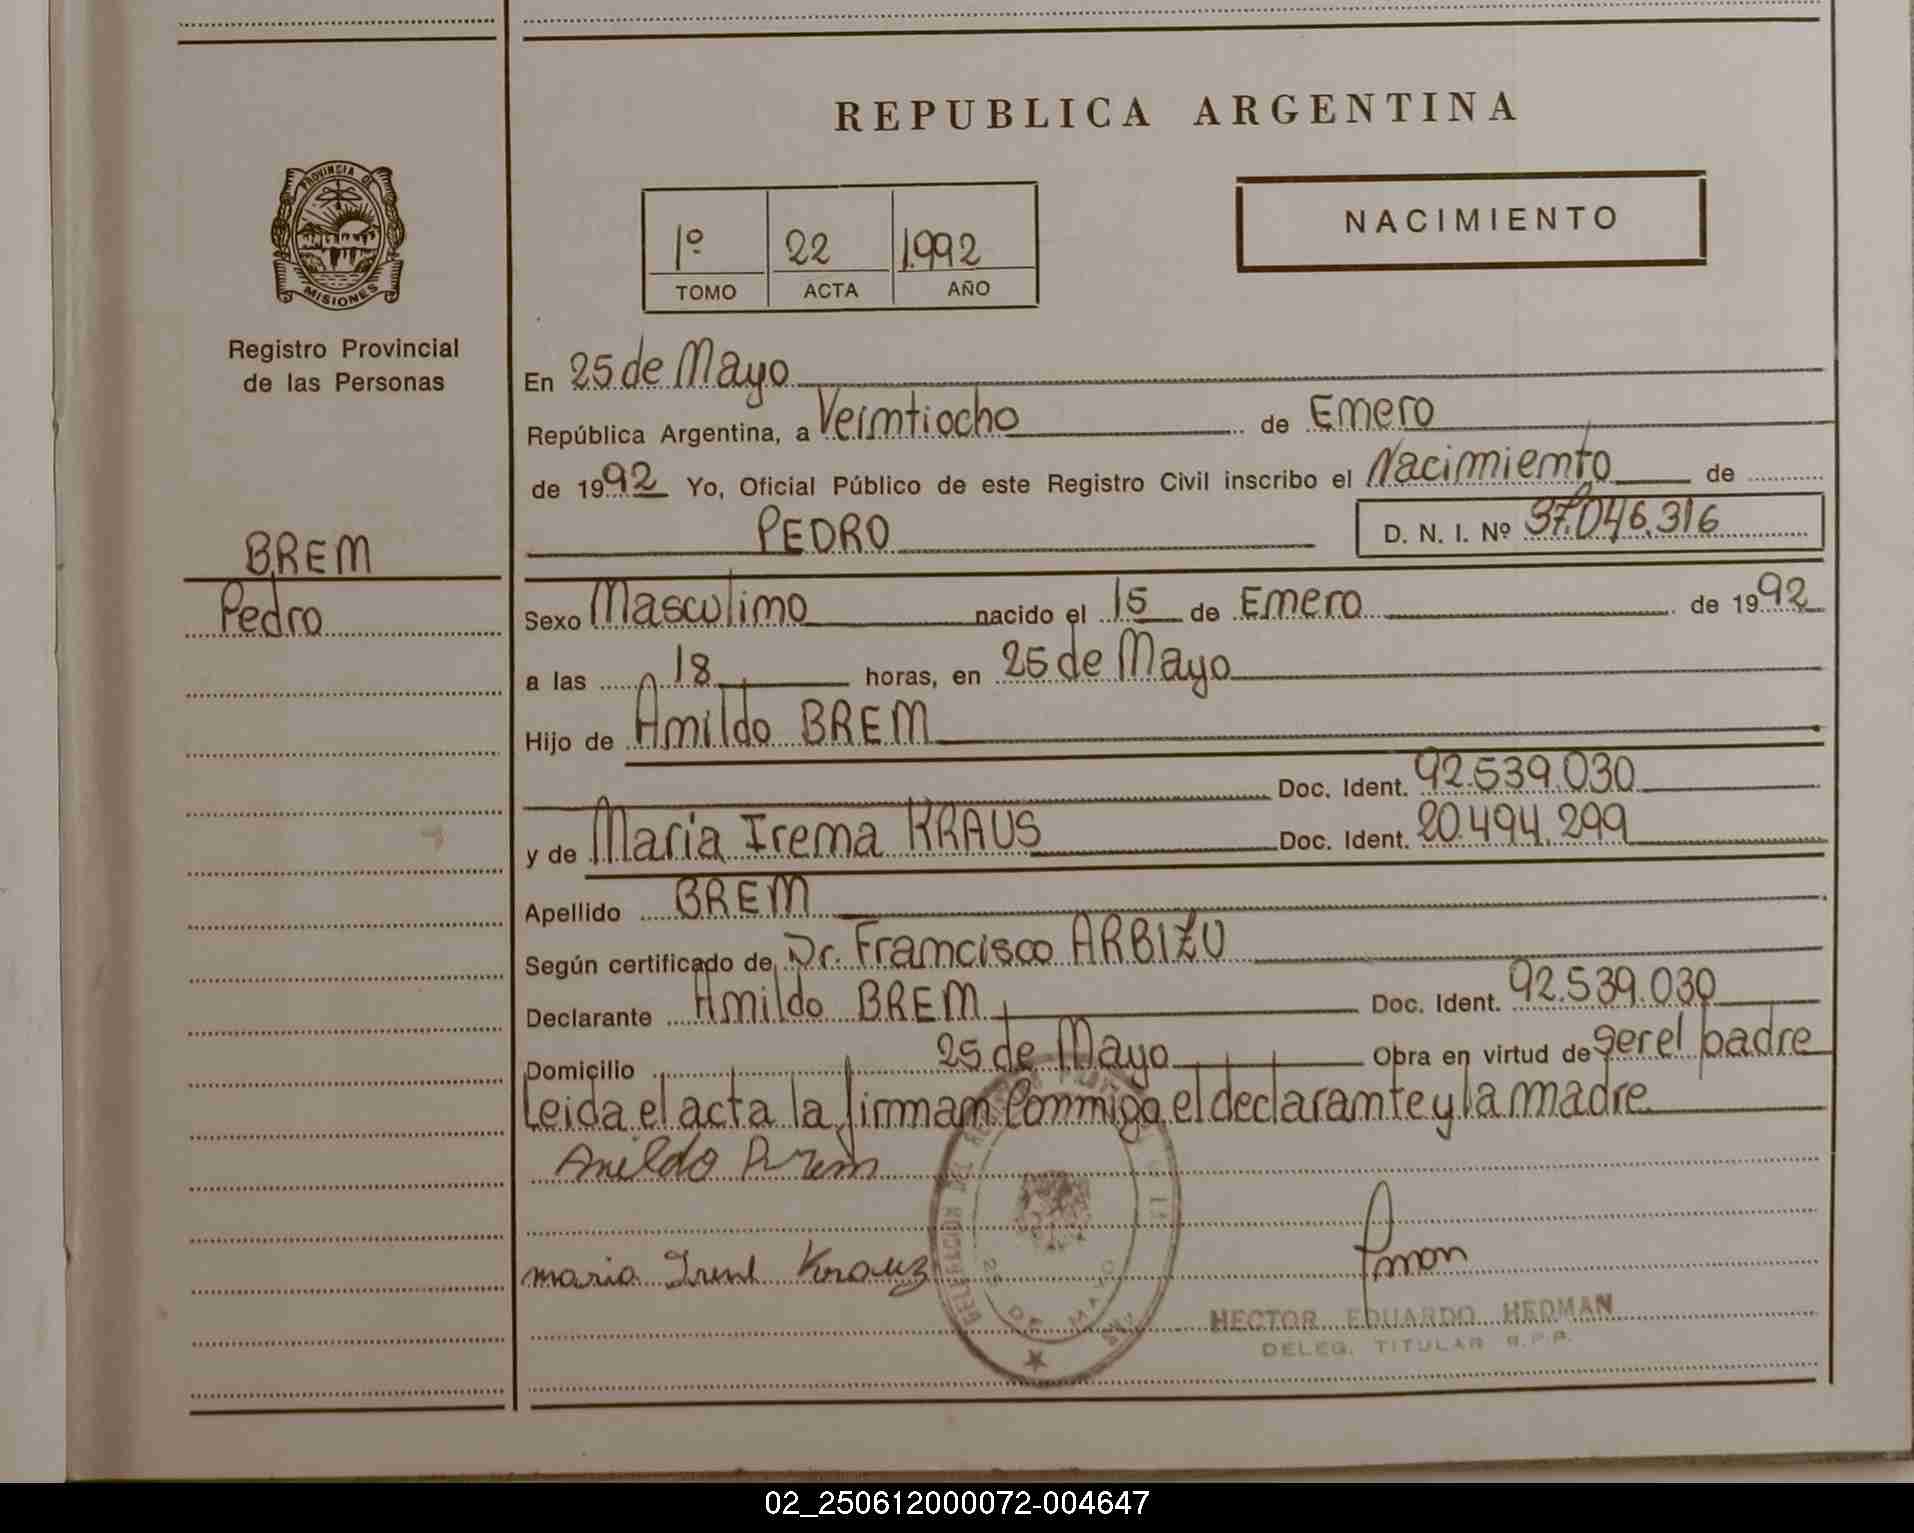 REPUBLICA ARGENTINA
PROVINCIA DE
MISIONES
Registro Provincial
de las Personas
1º 22 1.992
TOMO ACTA AÑO
NACIMIENTO
En 25 de Mayo
República Argentina, a Veintiocho de Enero
de 1992 Yo, Oficial Público de este Registro Civil inscribo el Nacimiento de
PEDRO D. N. I. Nº 37.046.316
BREM
Pedro
Sexo Masculino nacido el 15 de Enero de 1992
a las 18 horas, en 25 de Mayo
Hijo de Anildo BREM
Doc. Ident. 92.539.030
y de Maria Irema KRAUS Doc. Ident. 20.494.299
Apellido BREM
Según certificado de Dr. Francisco ARBIZU
Declarante Anildo BREM Doc. Ident. 92.539.030
Domicilio 25 de Mayo Obra en virtud de ser el padre
Leida el acta la firman Conmigo el declarante y la madre
Anildo Brem
maria Irene Krauz
HECTOR EDUARDO HEDMAN
DELEG. TITULAR R.P.P.
25 DE MAYO
02_250612000072-004647